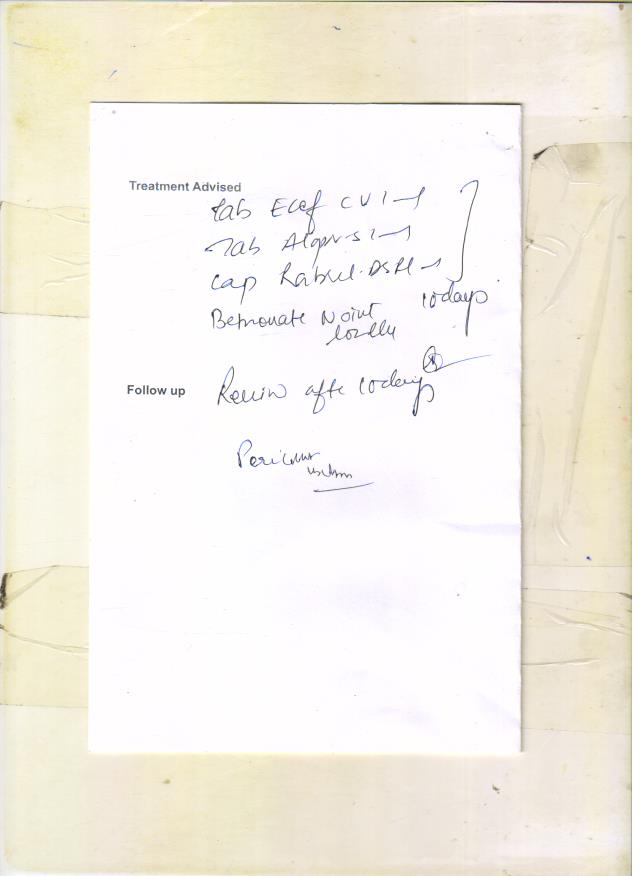 Treatment Advised
Tab Ecef CV 1-1
Tab 1-1
Cap DSR 1
Betnovate N oint 10 days
locally
Follow up Review after 10 days